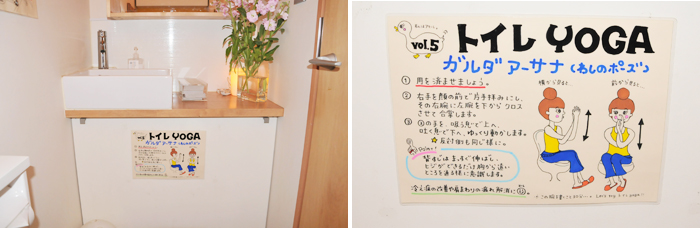 トイレ YOGA
ガルダ アーサナ
vol.5
トイレ YOGA
ガルダ アーサナ (わしのポーズ)
① 用を済ませましょう。
横から見ると…
前から見ると…
② 右手を顔の前で片手拝みにし、
その右腕に左腕を下からクロス
させて合掌します。
③ ②の手を、吸う息で上へ、
吐く息で下へ、ゆっくり動かします。
☆反対側も同じ様に。
Point!
背すじはまっすぐ伸ばし、
ヒジができるだけ胸から遠い
ところを通る様に意識します。
冷え症の改善や肩まわりの痛み解消に